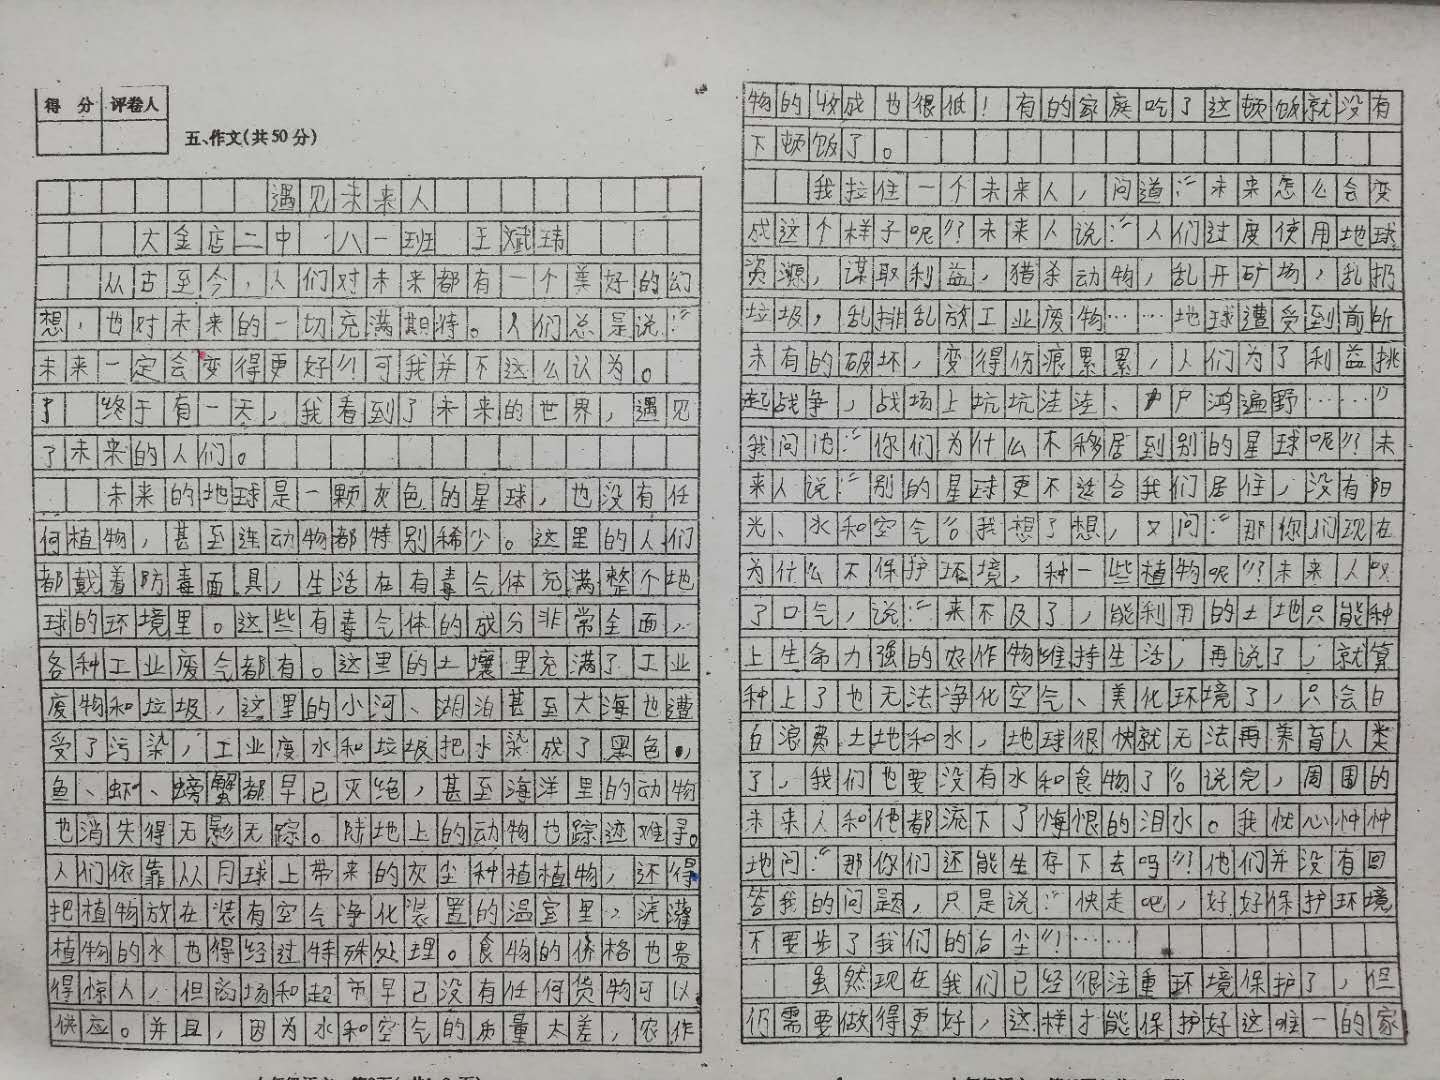 得 分 评卷人
五、作文(共50分)
遇见未来人
大金店二中 八一班 王斌琦
从古至今，人们对未来都有一个美好的幻
想，也对未来的一切充满期待。人们总是说：“
未来一定会变得更好”！可我并不这么认为。
了 终于有一天，我看到了未来的世界，遇见
了未来的人们。
未来的地球是一颗灰色的星球，也没有任
何植物，甚至连动物都特别稀少。这里的人们
都戴着防毒面具，生活在有毒气体充满整个地
球的环境里。这些有毒气体的成分非常全面，
各种工业废气都有。这里的土壤里充满了工业
废物和垃圾，这里的小河、湖泊甚至大海也遭
受了污染，工业废水和垃圾把水染成了黑色，
鱼、虾、螃蟹都早已灭绝，甚至海洋里的动物
也消失得无影无踪。陆地上的动物也踪迹难寻。
人们依靠从月球上带来的灰尘种植植物，还得
把植物放在装有空气净化装置的温室里，浇灌
植物的水也得经过特殊处理。食物的价格也贵
得惊人，但商场和超市早已没有任何货物可以
供应。并且，因为水和空气的质量太差，农作
物的收成也很低！有的家庭吃了这顿饭就没有
下顿饭了。
我拉住一个未来人，问道：“未来怎么会变
成这个样子呢”？未来人说：“人们过度使用地球
资源，谋取利益，猎杀动物，乱开矿场，乱扔
垃圾，乱排乱放工业废物……地球遭受到前所
未有的破坏，变得伤痕累累，人们为了利益挑
起战争，战场上坑坑洼洼、尸鸿遍野……”
我问他：“你们为什么不移居到别的星球呢”？未
来人说：“别的星球更不适合我们居住，没有阳
光、水和空气”。我想了想，又问：“那你们现在
为什么不保护环境，种一些植物呢”？未来人叹
了口气，说：“来不及了，能利用的土地只能种
上生命力强的农作物维持生活，再说了，就算
种上了也无法净化空气、美化环境了，只会白
白浪费土地和水，地球很快就无法再养育人类
了，我们也要没有水和食物了”。说完，周围的
未来人和他都流下了悔恨的泪水。我忧心忡忡
地问：“那你们还能生存下去吗”？他们并没有回
答我的问题，只是说：“快走吧，好好保护环境
不要步了我们的后尘”！……
虽然现在我们已经很注重环境保护了，但
仍需要做得更好，这样才能保护好这唯一的家